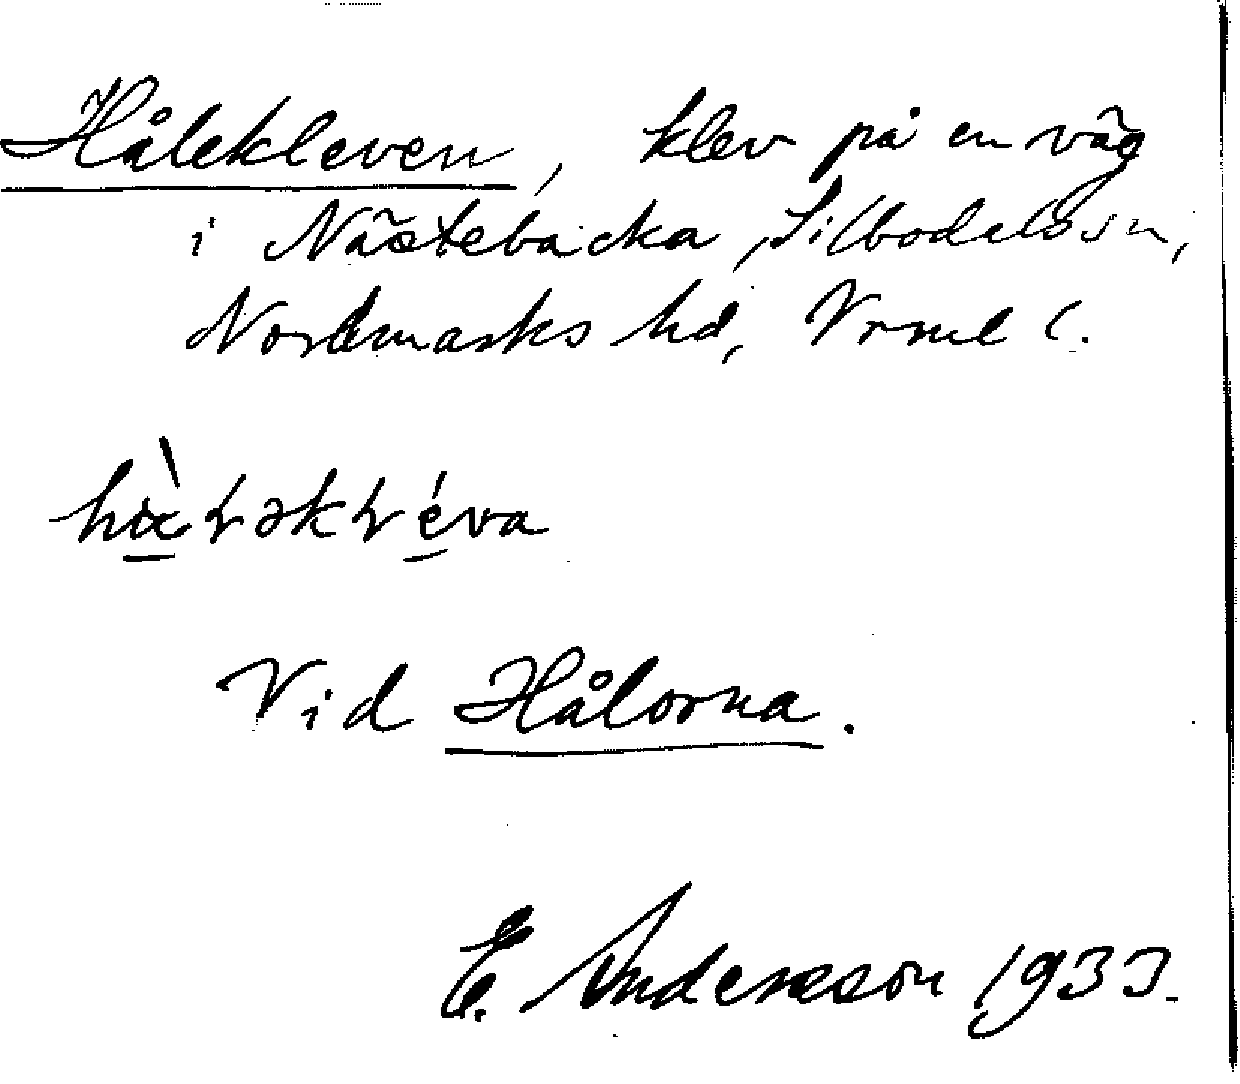 Hålekleven, klev på en väg
i Nästebacka, Silbodals sn,
Nordmarks hd, Vrml (.
Vid Hålorna.
E. Andersson 1933.